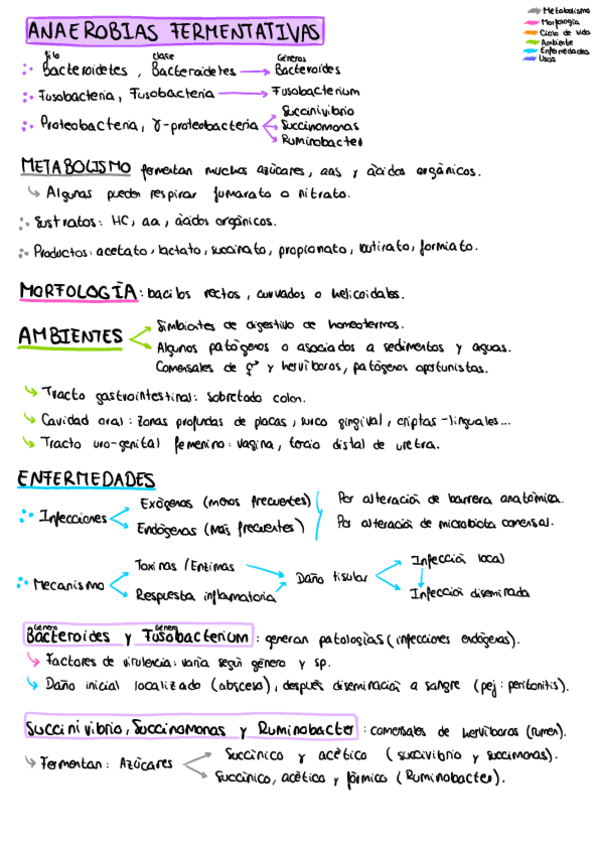 Metabolismo
Morfología
Ciclo de vida
Ambiente
Enfermedades
Usos
ANAEROBIAS FERMENTATIVAS
filo clase Géneros
Bacteroidetes, Bacteroidetes → Bacteroides
Fusobacteria, Fusobacteria → Fusobacterium
Proteobacteria, γ-proteobacteria
Succinivibrio
Succinomonas
Ruminobacter
METABOLISMO fermentan muchos azúcares, aas y àcidos orgànicos.
Algunas pueden respirar fumarato o nitrato.
Sustratos: HC, aa, àcidos orgànicos.
Productos: acetato, lactato, succinato, propionato, butirato, formiato.
MORFOLOGÍA: bacilos rectos, curvados o helicoidales.
AMBIENTES
Simbiontes de digestivo de homeotermos.
Algunos patògenos o asociados a sedimentos y aguas.
Comensales de y hervíboros, patògenos oportunistas.
Tracto gastrointestinal: sobretodo colon.
Cavidad oral: zonas profundas de placas, surco gingival, criptas-linguales...
Tracto uro-genital femenino: vagina, tercio distal de uretra.
ENFERMEDADES
Infecciones
Exògenas (menos frecuentes)
Endògenas (más frecuentes)
Por alteraciòn de barrera anatòmica.
Por alteraciòn de microbiota comensal.
Mecanismo
Toxinas / Enzimas
Respuesta inflamatoria
Daño tisular
Infecciòn local
Infecciòn diseminada
Género Género
Bacteroides y Fusobacterium: generan patologías (infecciones endògenas).
Factores de virulencia: varía segùn gènero y sp.
Daño inicial localizado (absceso), despuès diseminaciòn a sangre (pej: peritonitis).
Succinivibrio, Succinomonas y Ruminobacter: comensales de hervíboros (rumen).
Fermentan: Azúcares
Succínico y acètico (succivibrio y succimonas).
Succínico, acètico y fòrmico (Ruminobacter).